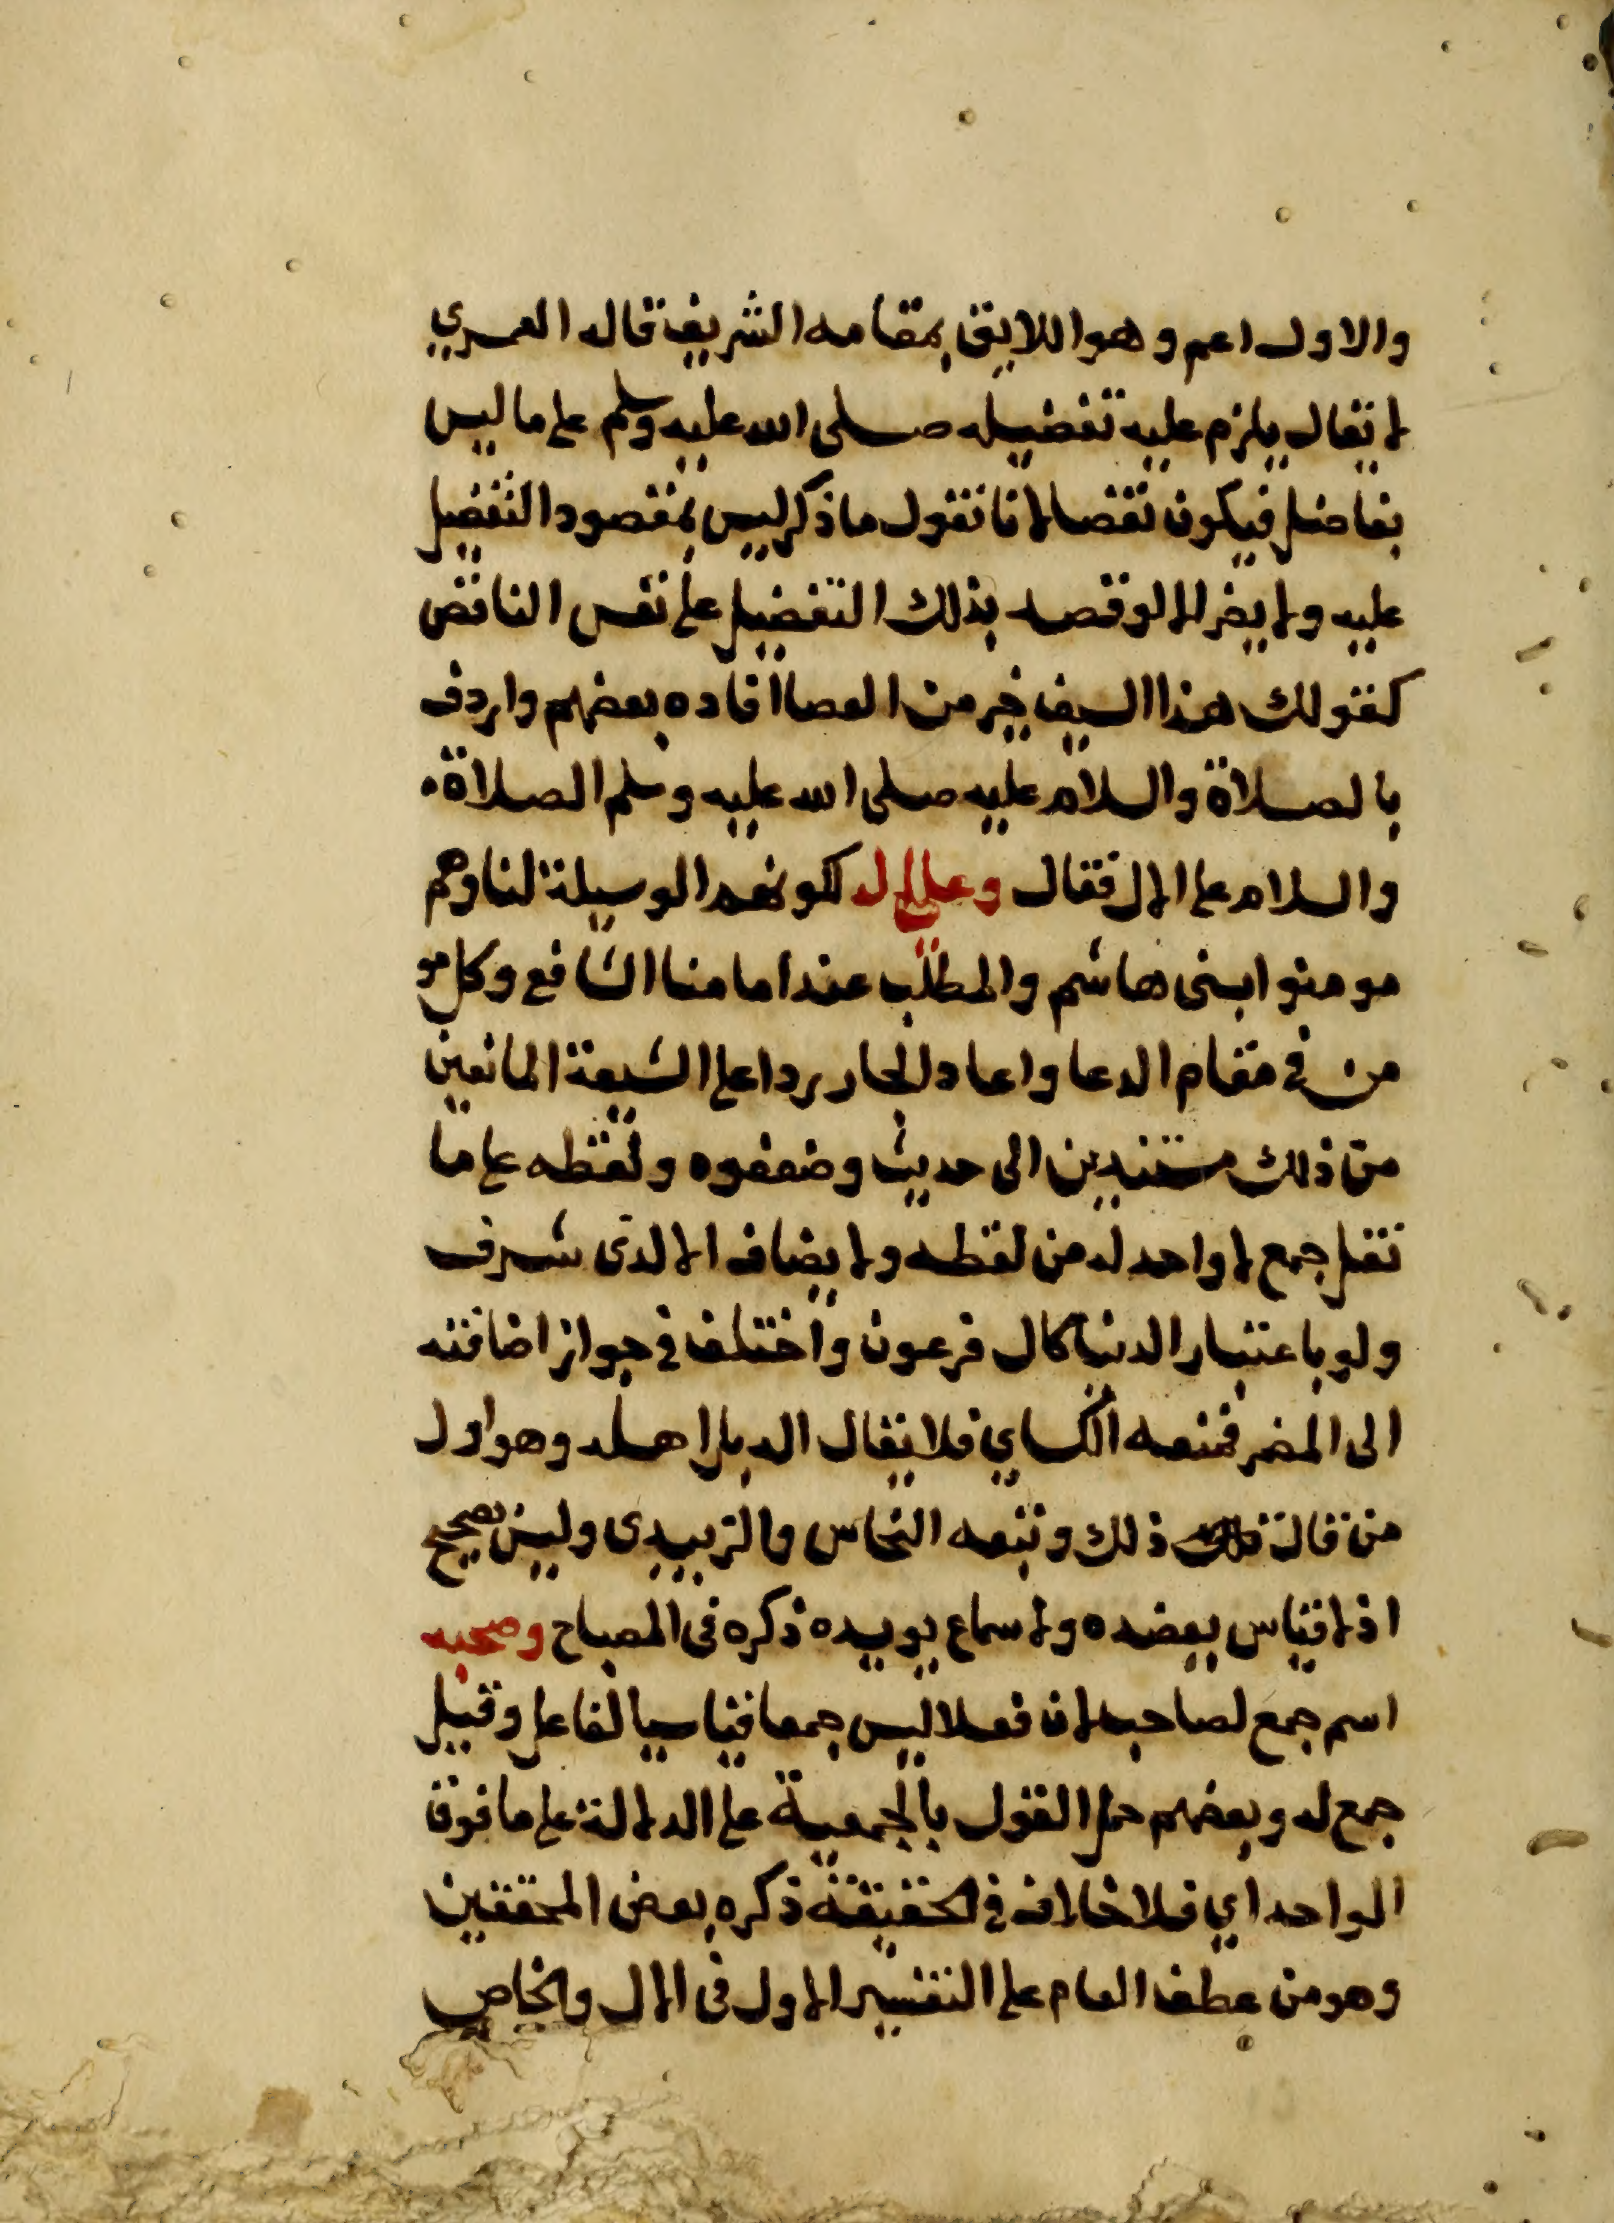 والاول اعم وهو اللايق بمقامه الشريف قاله العمري
لا يقال يلزم عليه تفضيله صلى الله عليه وسلم على ما ليس
بفاضل فيكون نقصا لانا نقول ما ذكر ليس بمقصود التفضيل
عليه ولا يضر الا لو قصد بذلك التفضيل على نفس الناقص
كقولك هذا السيف خير من العصا افاده بعضهم واردف
بالصلاة والسلام عليه صلى الله عليه وسلم الصلاة
والسلام على الال فقال وعلى اله لكونهم الوسيلة لنا وهم
مومنوا بنى هاشم والمطلب عند امامنا الشافع وكل مو
من في مقام الدعا واعاد الجار ردا على الشيعة المانعين
من ذلك مستندين الى حديث وضعفوه ولفظه على ما
نقل جمع لا واحد له من لفظه ولا يضاف الا لذى شرف
ولو باعتبار الدنيا كال فرعون واختلف في جواز اضافته
الى المضمر فمنعه الكساي فلا يقال اله بل اهله وهو اول
من قال ذلك وتبعه النحاس والزبيدى وليس بصحيح
اذ لا قياس يعضده ولا سماع يويده ذكره فى المصباح وصحبه
اسم جمع لصاحب لان فعلا ليس جمعا قياسيا لفاعل وقيل
جمع له وبعضهم حمل القول بالجمعية على الدلالة على ما فوق
الواحد اي فلا خلاف في الحقيقة ذكره بعض المحققين
وهو من عطف العام على التفسير الاول فى الال والخاص